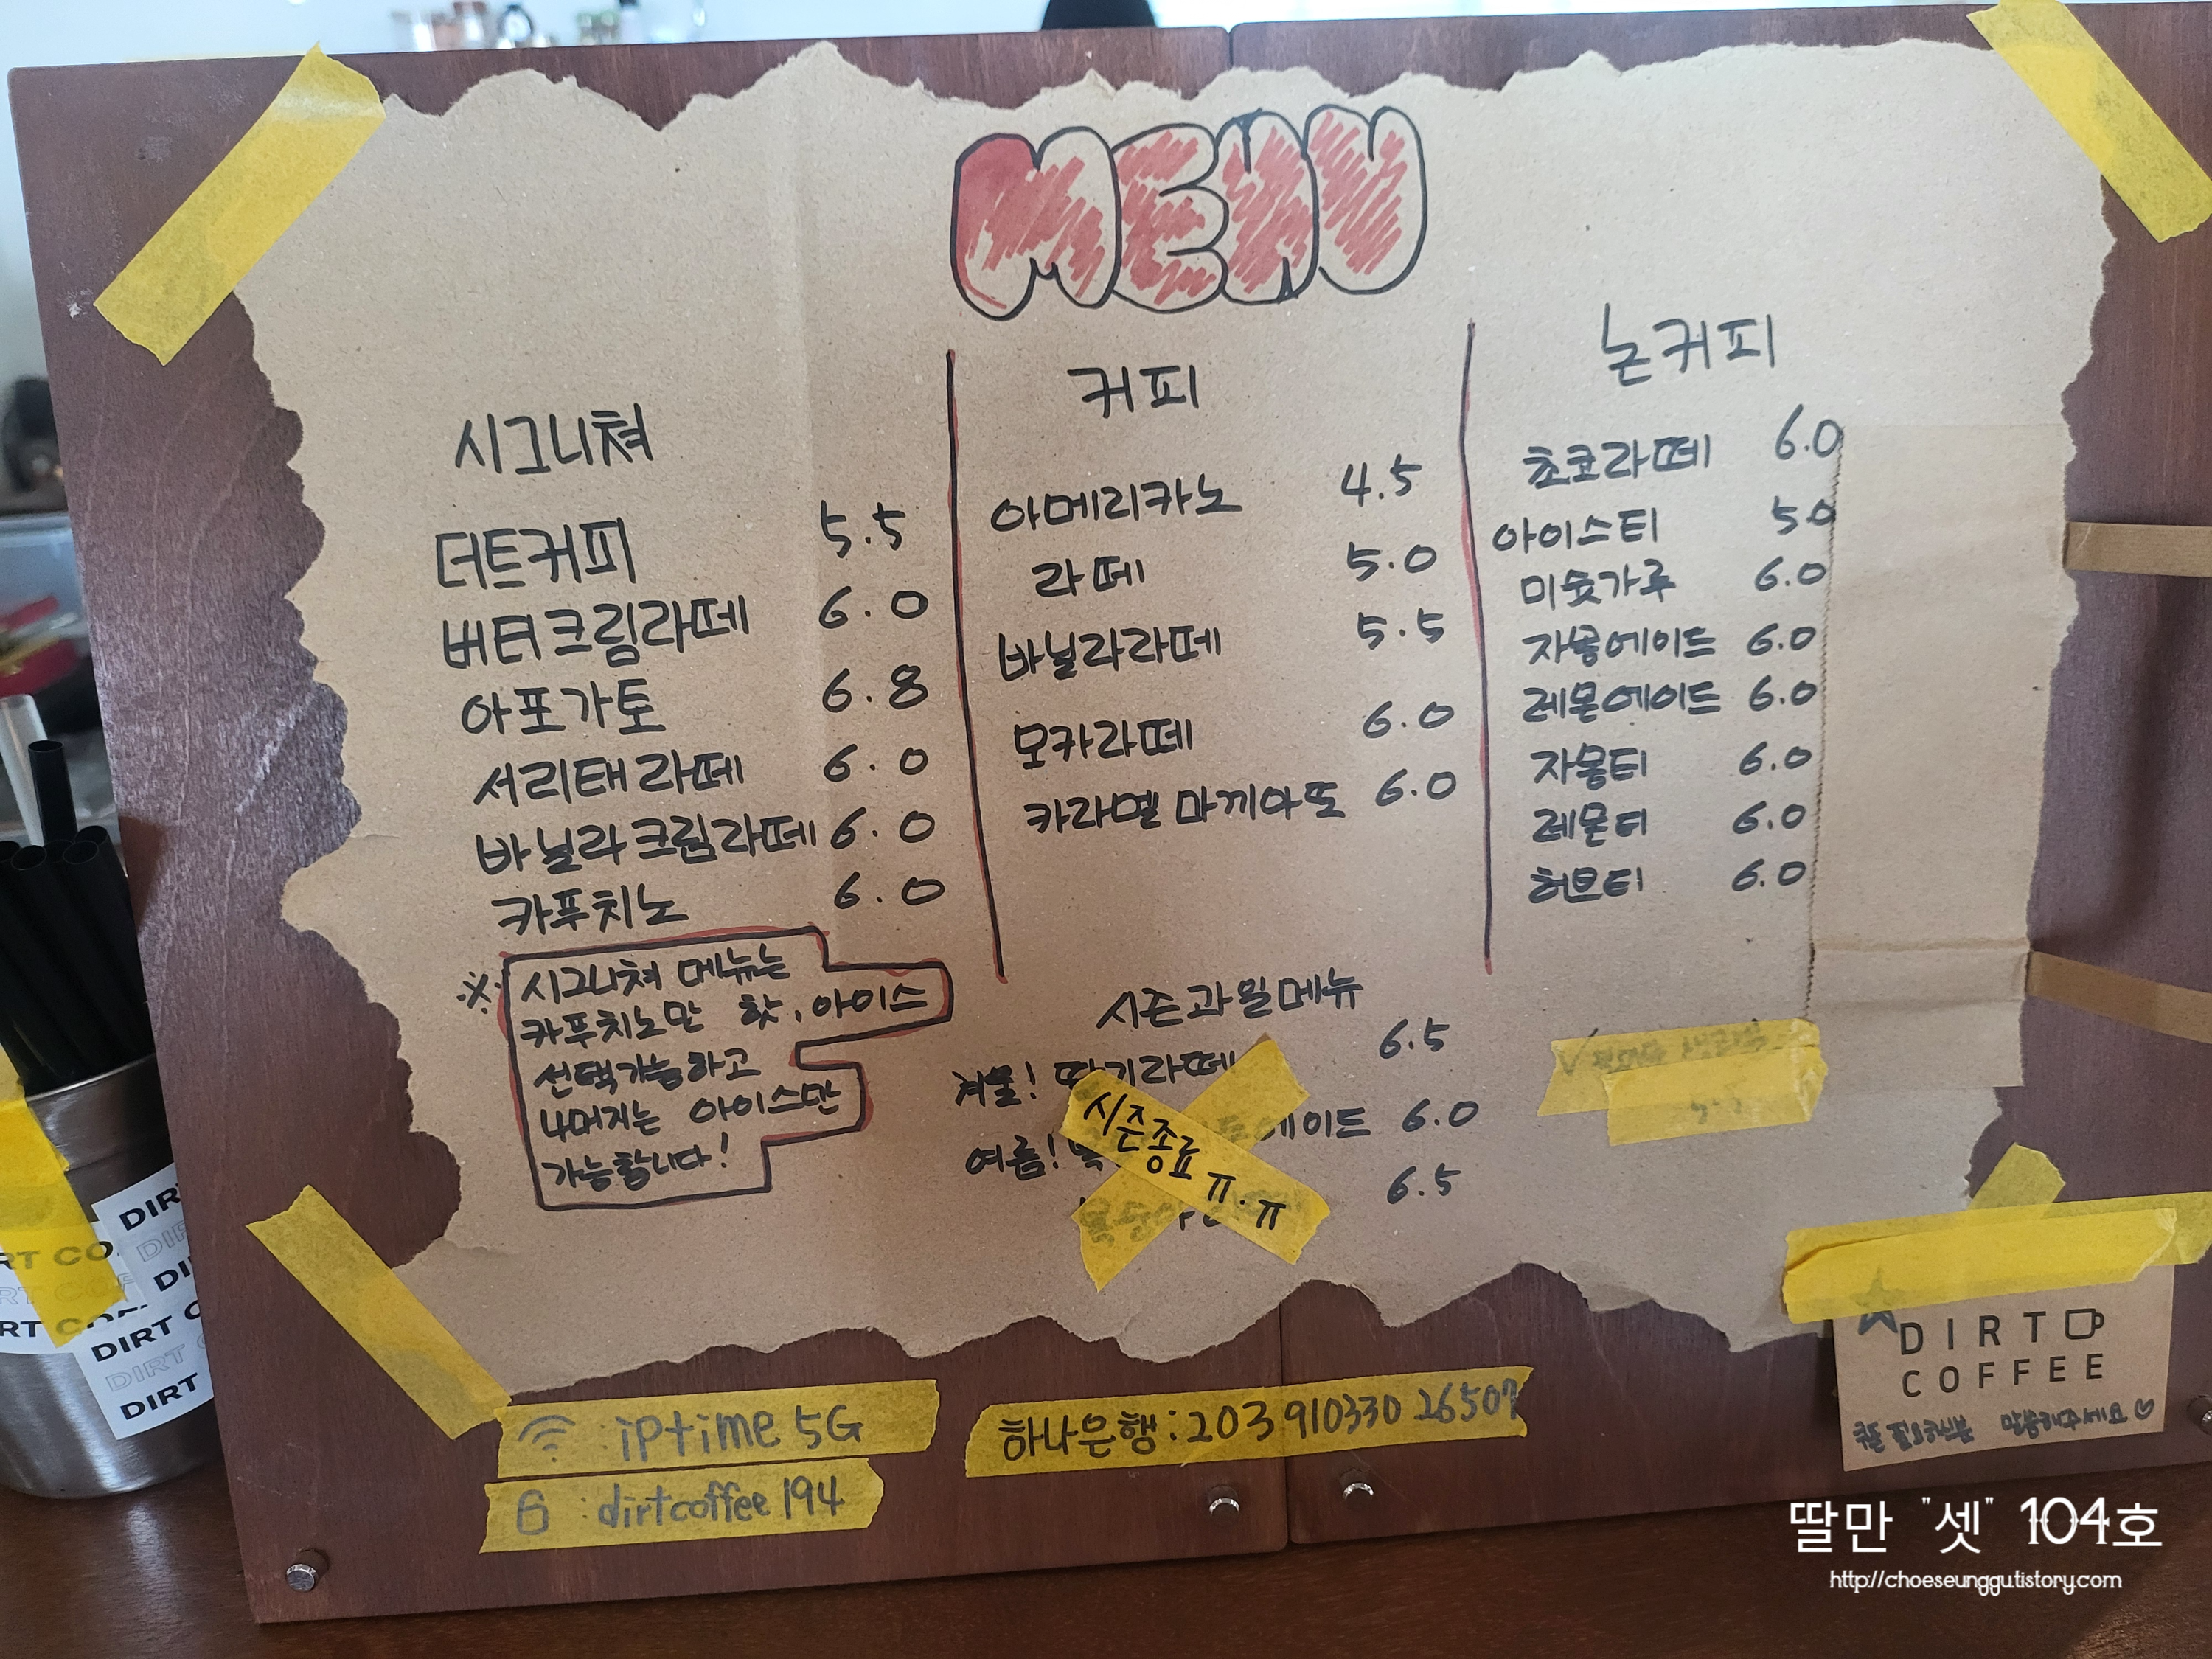 MENU
시그니쳐
더트커피 5.5
버터크림라떼 6.0
아포가토 6.8
서리태라떼 6.0
바닐라크림라떼 6.0
카푸치노 6.0
※ 시그니쳐 메뉴는
카푸치노만 핫, 아이스
선택가능하고
나머지는 아이스만
가능합니다!
커피
아메리카노 4.5
라떼 5.0
바닐라라떼 5.5
모카라떼 6.0
카라멜 마끼아또 6.0
시즌과일메뉴
겨울! 딸기라떼 6.5
여름! 에이드 6.0
6.5
시즌종료
ㅠ.ㅠ
논커피
초코라떼 6.0
아이스티 5.0
미숫가루 6.0
자몽에이드 6.0
레몬에이드 6.0
자몽티 6.0
레몬티 6.0
허브티 6.0
: iptime 5G
: dirtcoffee194
하나은행: 203 910330 26507
DIRT
COFFEE
쿠폰 필요하신분 말씀해주세요♡
DIRT
DIRT
딸만 "셋" 104호
http://choeseunggutistory.com